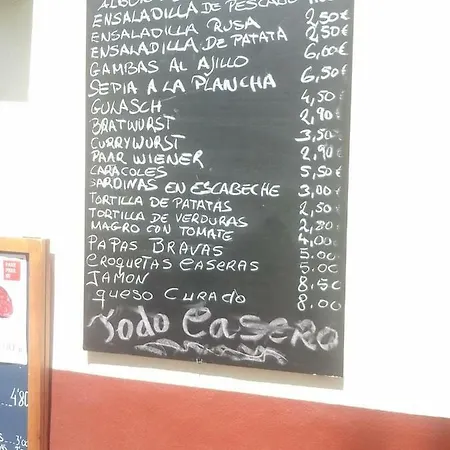 ENSALADILLA DE PESCADO
ENSALADILLA RUSA 2,50€
ENSALADILLA DE PATATA 2,50€
GAMBAS AL AJILLO 6,00€
SEPIA A LA PLANCHA 6,50€
GULASCH 4,50€
BRATWURST 2,90€
CURRYWURST 3,50€
PAAR WIENER 2,90€
CARACOLES 5,50€
SARDINAS EN ESCABECHE 3,00€
TORTILLA DE PATATAS 2,50€
TORTILLA DE VERDURAS 2,80€
MAGRO CON TOMATE 4,00€
PAPAS BRAVAS 5.00€
CROQUETAS CASERAS 5.00€
JAMON 8,50€
QUESO CURADO 8,00€
Todo CASERO
4'80